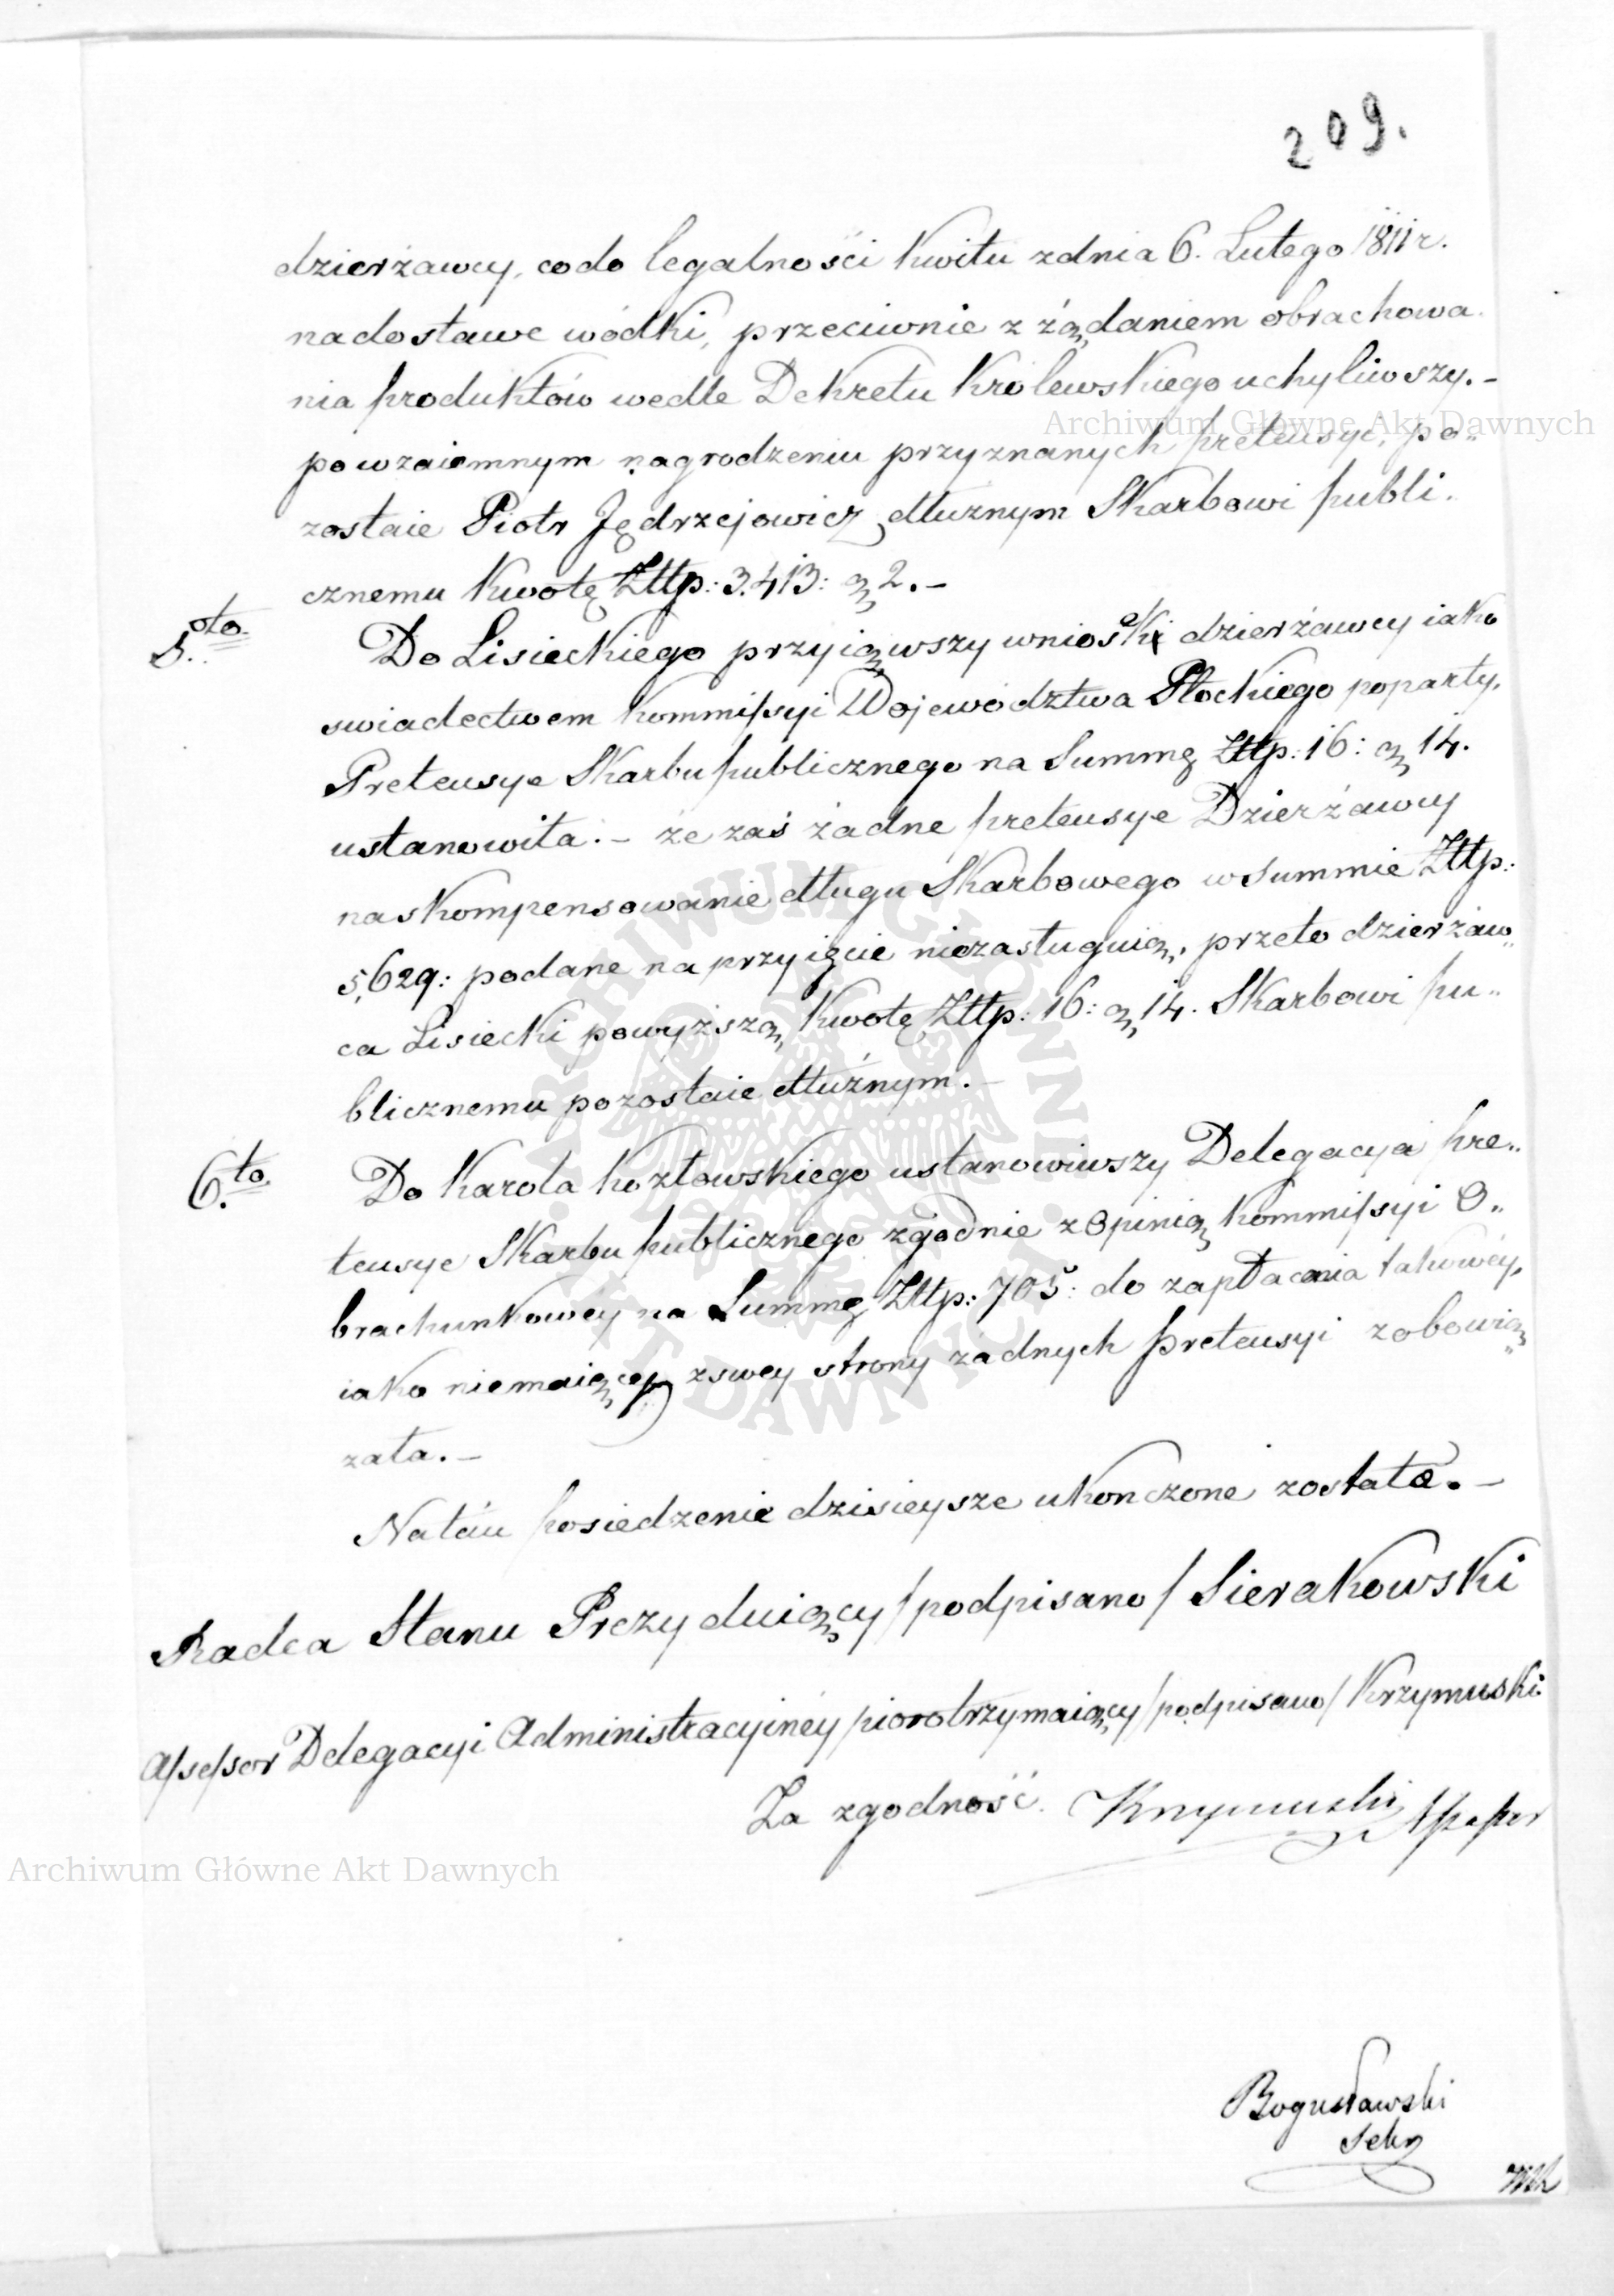 209.
dzierżawcy, co do legalności Kwitu z dnia 6. Lutego 1811 r.
na dostawe wódki, przeciwnie z żądaniem obrachowa.
nia produktów wedle Dekretu Królewskiego uchyliwszy. –
Archiwum Główne Akt Dawnych
po wzaiemnym nagrodzeniu przyznanych pretensyi, po„
zostaie Piotr Jędrzejowicz dłużnym Skarbowi publi.
cznemu Kwotę Złtp: 3.413: 2. –
5.to Do Lisieckiego przyiąwszy wniosek dzierżawcy iako
swiadectwem Kommissyi Wojewodztwa Płockiego poparty,
Pretensye Skarbu publicznego na Summę Złtp: 16: 14.
ustanowiła. – że zaś żadne pretensye Dzierżawcy
na skompensowanie długu Skarbowego w Summie Złtp:
5,629: podane na przyięcie niezasługuią, przeto dzierżaw„
ca Lisiecki powyższą Kwotę Złtp: 16: 14. Skarbowi pu„
blicznemu pozostaie dłużnym. –
6.to Do Karola Kozłowskiego ustanowiwszy Delegacya pre„
tensye Skarbu publicznego zgodnie z Opinią Kommissyi O„
brachunkowey na Summę Złtp: 705: do zapłacenia takowéy,
iako niemaiący z swey strony żadnych pretensyi zobowią„
zała. –
Na tém posiedzenie dzisieysze ukonczone zostało. –
Radca Stanu Prezyduiący /podpisano/ Sierakowski
Assessor Delegacyi Administracyinéy pioro trzymaiący /podpisano/ Krzymuski
Za zgodność. Krzymuski Assessor
Archiwum Główne Akt Dawnych
Bogusławski
Sekr
ARCHIWUM GŁÓWNE AKT DAWNYCH